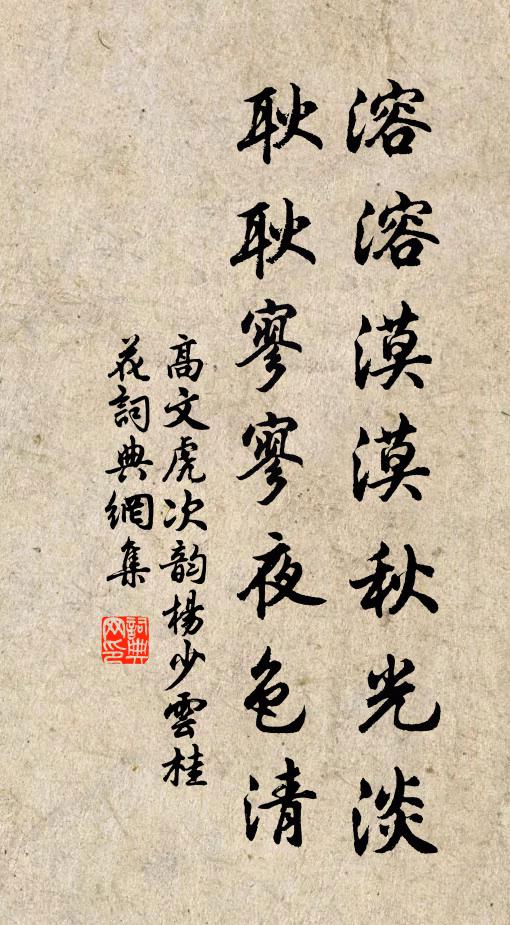 溶溶漠漠秋光淡
耿耿寥寥夜色清
高文虎次韵楊少雲桂
花詞典網集
詞典
网印